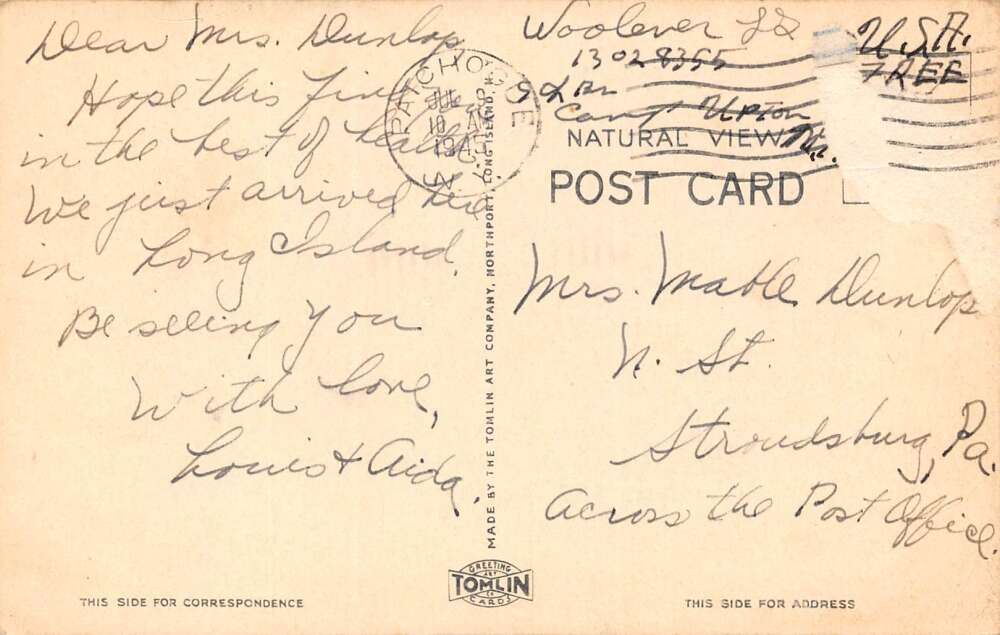 Dear Mrs. Dunlop
Hope this finds
in the best of health
We just arrived here
in Long Island.
Be seeing you
With love,
Louis & Aida.
THIS SIDE FOR CORRESPONDENCE
PATCHOGUE
JUL
10 AM
194
N.Y.
MADE BY THE TOMLIN ART COMPANY, NORTHPORT, LONG ISLAND, N.Y.
GREETING
TOMLIN
CARDS
Woolever
13028355
Camp Upton
N.Y.
U.S.A.
FREE
NATURAL VIEW
POST CARD
Mrs. Mable Dunlop
N. St.
Stroudsburg, Pa.
Across the Post Office.
THIS SIDE FOR ADDRESS